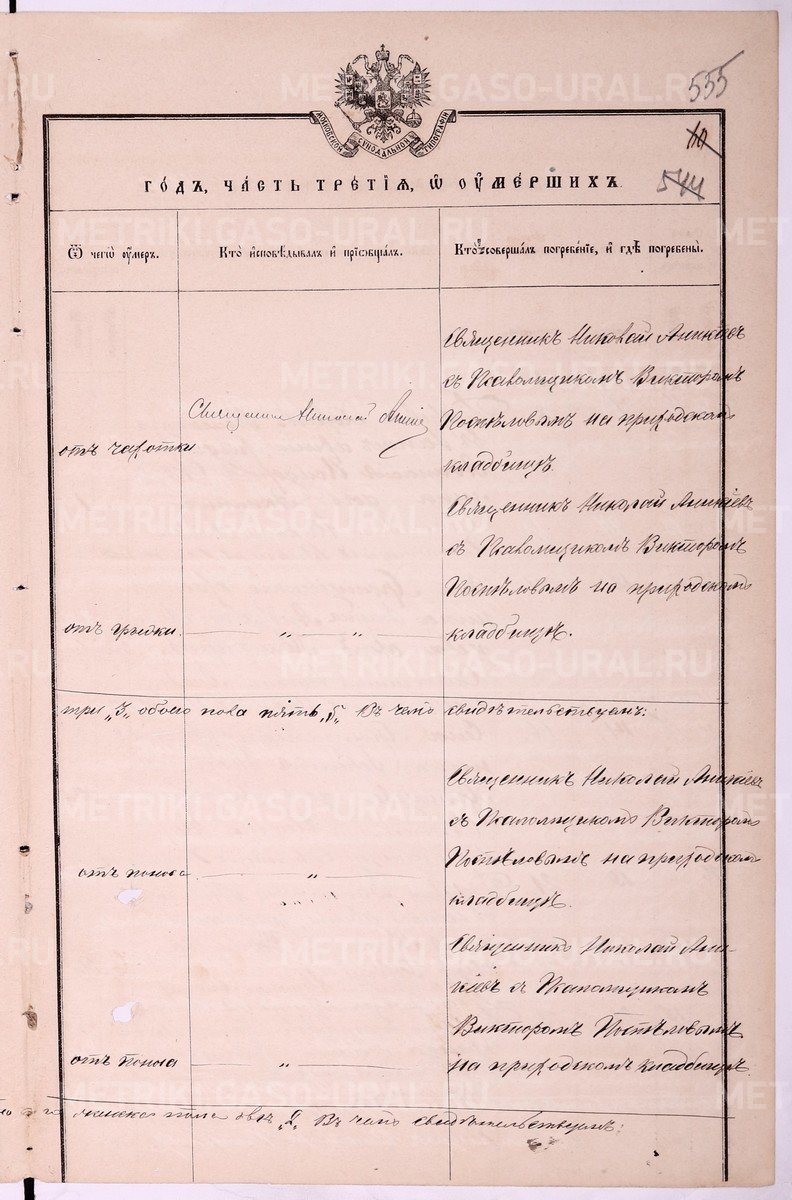 555
МОСКОВСКОЙ СѴНОДАЛЬНОЙ ТИПОГРАФІИ
10
544
ГОДЪ, ЧАСТЬ ТРЕТІЯ, Ѡ ОУМЕРШИХЪ.
Ѿ чегѡ оумеръ.
Кто исповѣдывалъ и пріобщалъ.
Кто совершалъ погребеніе, и гдѣ погребены.
Священникъ Николай Аникіевъ
съ Псаломщикомъ Викторомъ
Поспѣловымъ на приходскомъ
кладбищѣ.
отъ чахотки
Священникъ Николай Аникіевъ
Священникъ Николай Аникіевъ
съ Псаломщикомъ Викторомъ
Поспѣловымъ на приходскомъ
кладбищѣ.
отъ грыжи. — „ — „ —
три „3„ обоего пола пять „5„ Въ чемъ свидѣтельствуемъ:
Священникъ Николай Аникіевъ
съ Псаломщикомъ Викторомъ
Поспѣловымъ на приходскомъ
кладбищѣ.
отъ поноса — „ —
Священникъ Николай Ани-
кіевъ съ Псаломщикомъ
Викторомъ Поспѣловымъ
на приходскомъ кладбищѣ.
отъ поноса — „ —
женска пола двѣ „2„ Въ чемъ свидѣтельствуемъ:
METRIKI.GASO-URAL.RU